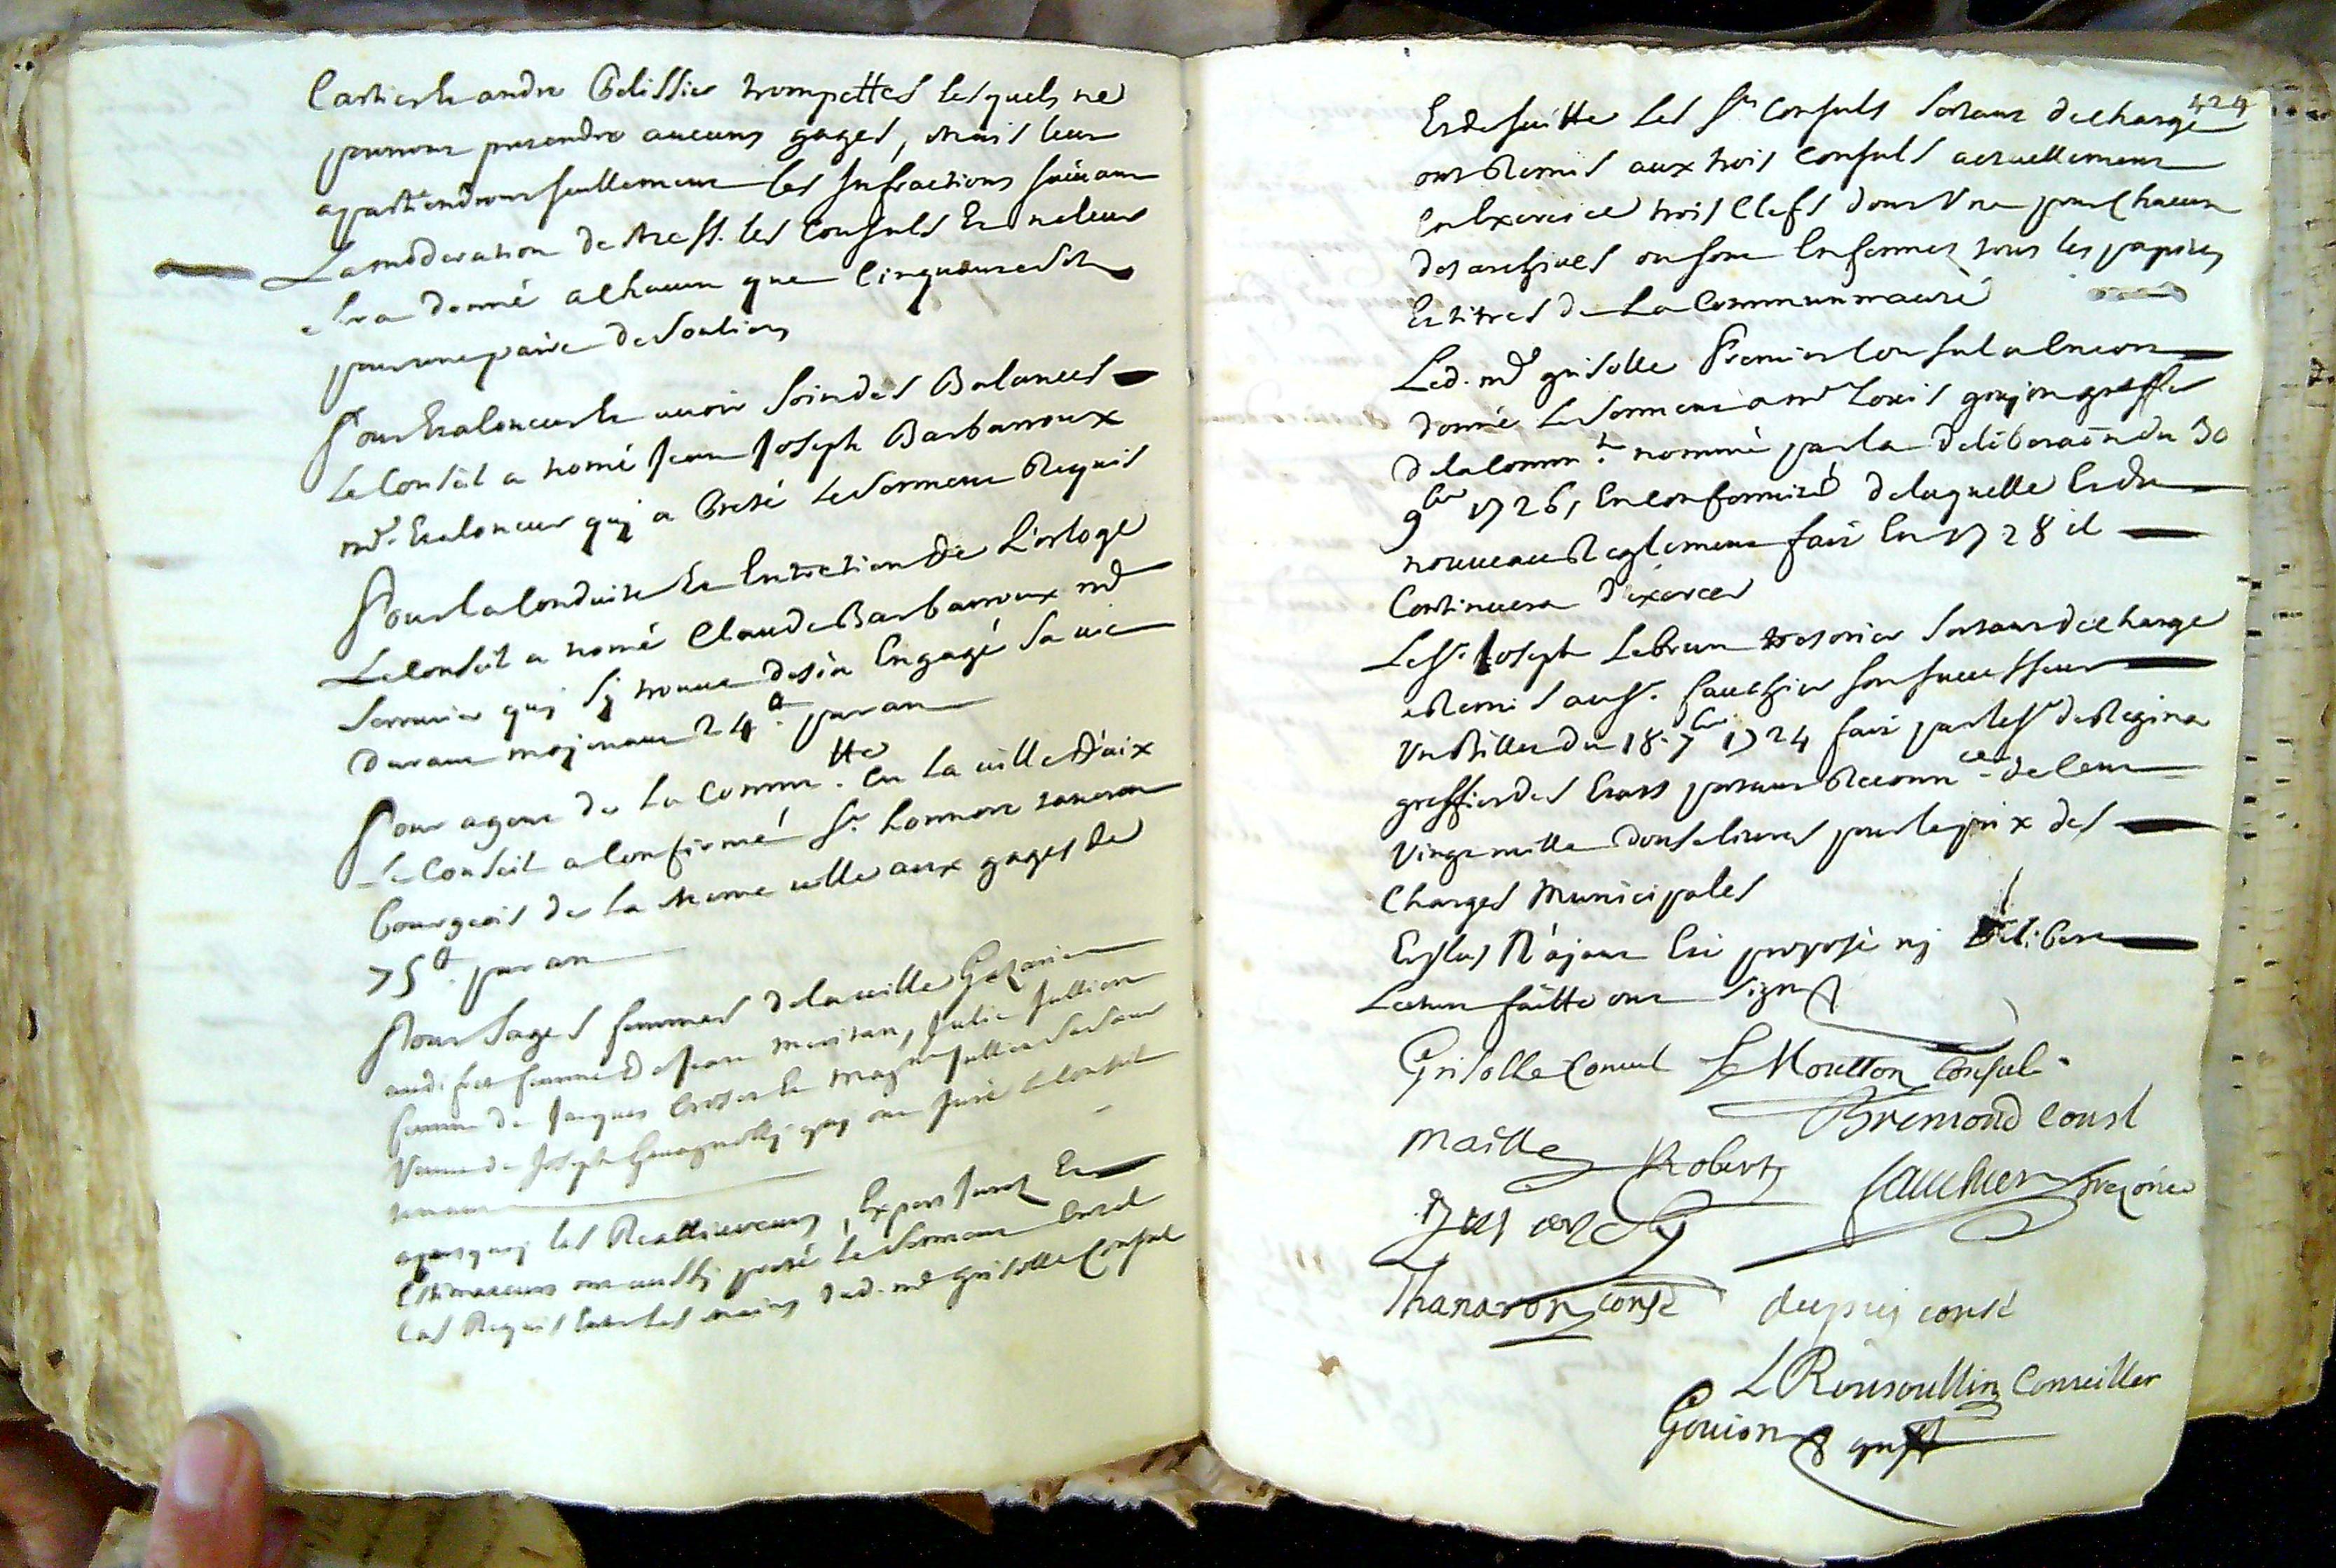 Cartier & andre Pelissier trompettes lesquels ne
pourront pretendre aucuns gages, mais leur
apartiendront seullement les Infractions suivant
La moderation de Mess. les Consuls Et ne leur
sera donné a chacun que Cinquante sols
pour une paire de souliers
Pour Etaloneur & avoir soin des Balances
Le Conseil a nomé Jean Joseph Barbarroux
md. Etaloneur quj a Presté le serment Requis
Pour la Conduite Et Entretien de L'orloge
Le Conseil a nomé Claude Barbarroux md
serrurier quj sj trouve desja Engagé sa vie
durant mojenant 24 # par an
Pour agent de la Commtté. En la ville d'aix
Le Conseil a Confirmé Sr. honnoré
bourgeois de la meme ville aux gages de
75 # par an
Pour sages femmes de la ville
audifret femme de Jean meritan, Julie Jullien
femme de Jacques & Magne Jullien
Veuve de Joseph quj ont Juré le Conseil
tenant
apres quoj les Reallivreurs, Expers Jurez Et
Estimateurs ont aussj presté le serment En tel
Cas Requis Entre les mains dud. me Grisolle Consul
424
Et de suitte Les Srs Consuls sortant de charge
ont Remis aux trois Consuls actuellement
En Exercice trois Clefs dont Une pour Chacun
des archives ou sont Enfermez tous les papiers
Et titres de La Communnauté
Led. me grisolle Premier Consul a Encore
donné Le serment a me Louis goujon greffier
de la Commté. nommé par la deliberaon du 30
9bre 1726, En conformité de laquelle Et du
nouveau Reglement fait En 1728 il
Continuera d'exercer
Le Sr. Joseph Lebrun tresorier sortant de charge
a Remis au Sr. fauchier son successeur
Un Billet du 18. 7bre 1724 fait par le Sr de Regina
greffier des Etats portant Reconnce de leur
Vingt mille donse livres pour le prix des
Charges Municipales
Et plus N'ajant Eté proposé nj Deliberé
Lecture faitte ont signé
Grisolle Consul Le Moutton Consul
Bremond Consl
maille Robert
fauchier trezorier
Thanaron consé dupuj consé
L Roussoullin Conseiller
Gouion greff